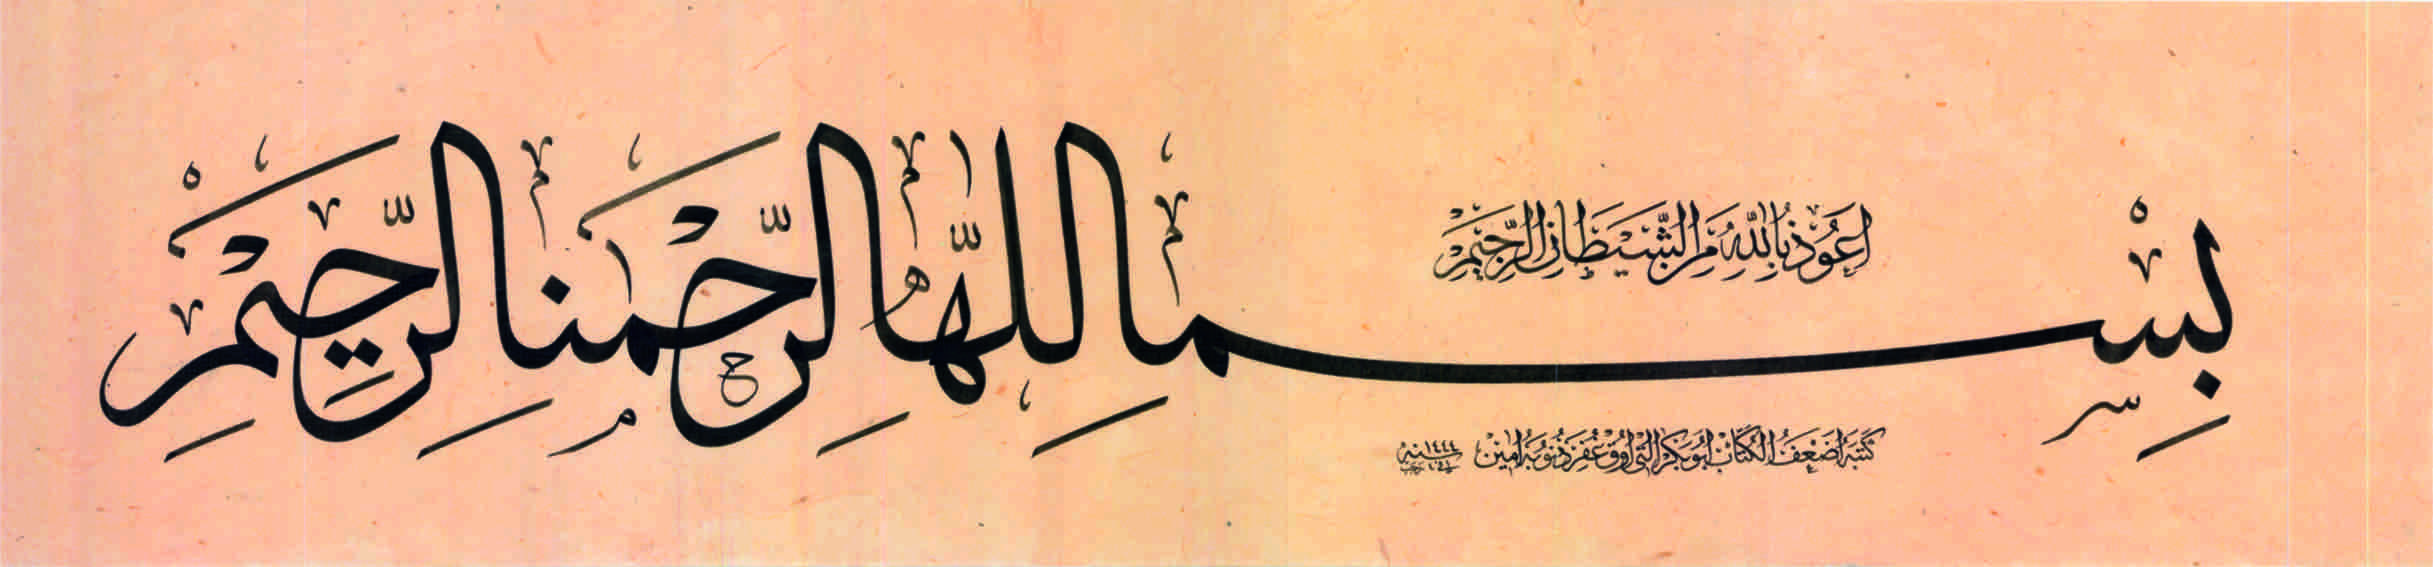 اعوذ بالله من الشيطان الرجيم
بِسْمِ اللّٰهِ الرَّحْمٰنِ الرَّحِيمِ
كتبه اضعف الكتاب ابوبكر التي اوق غفر ذنوبه امين سنة ١٤٤٤